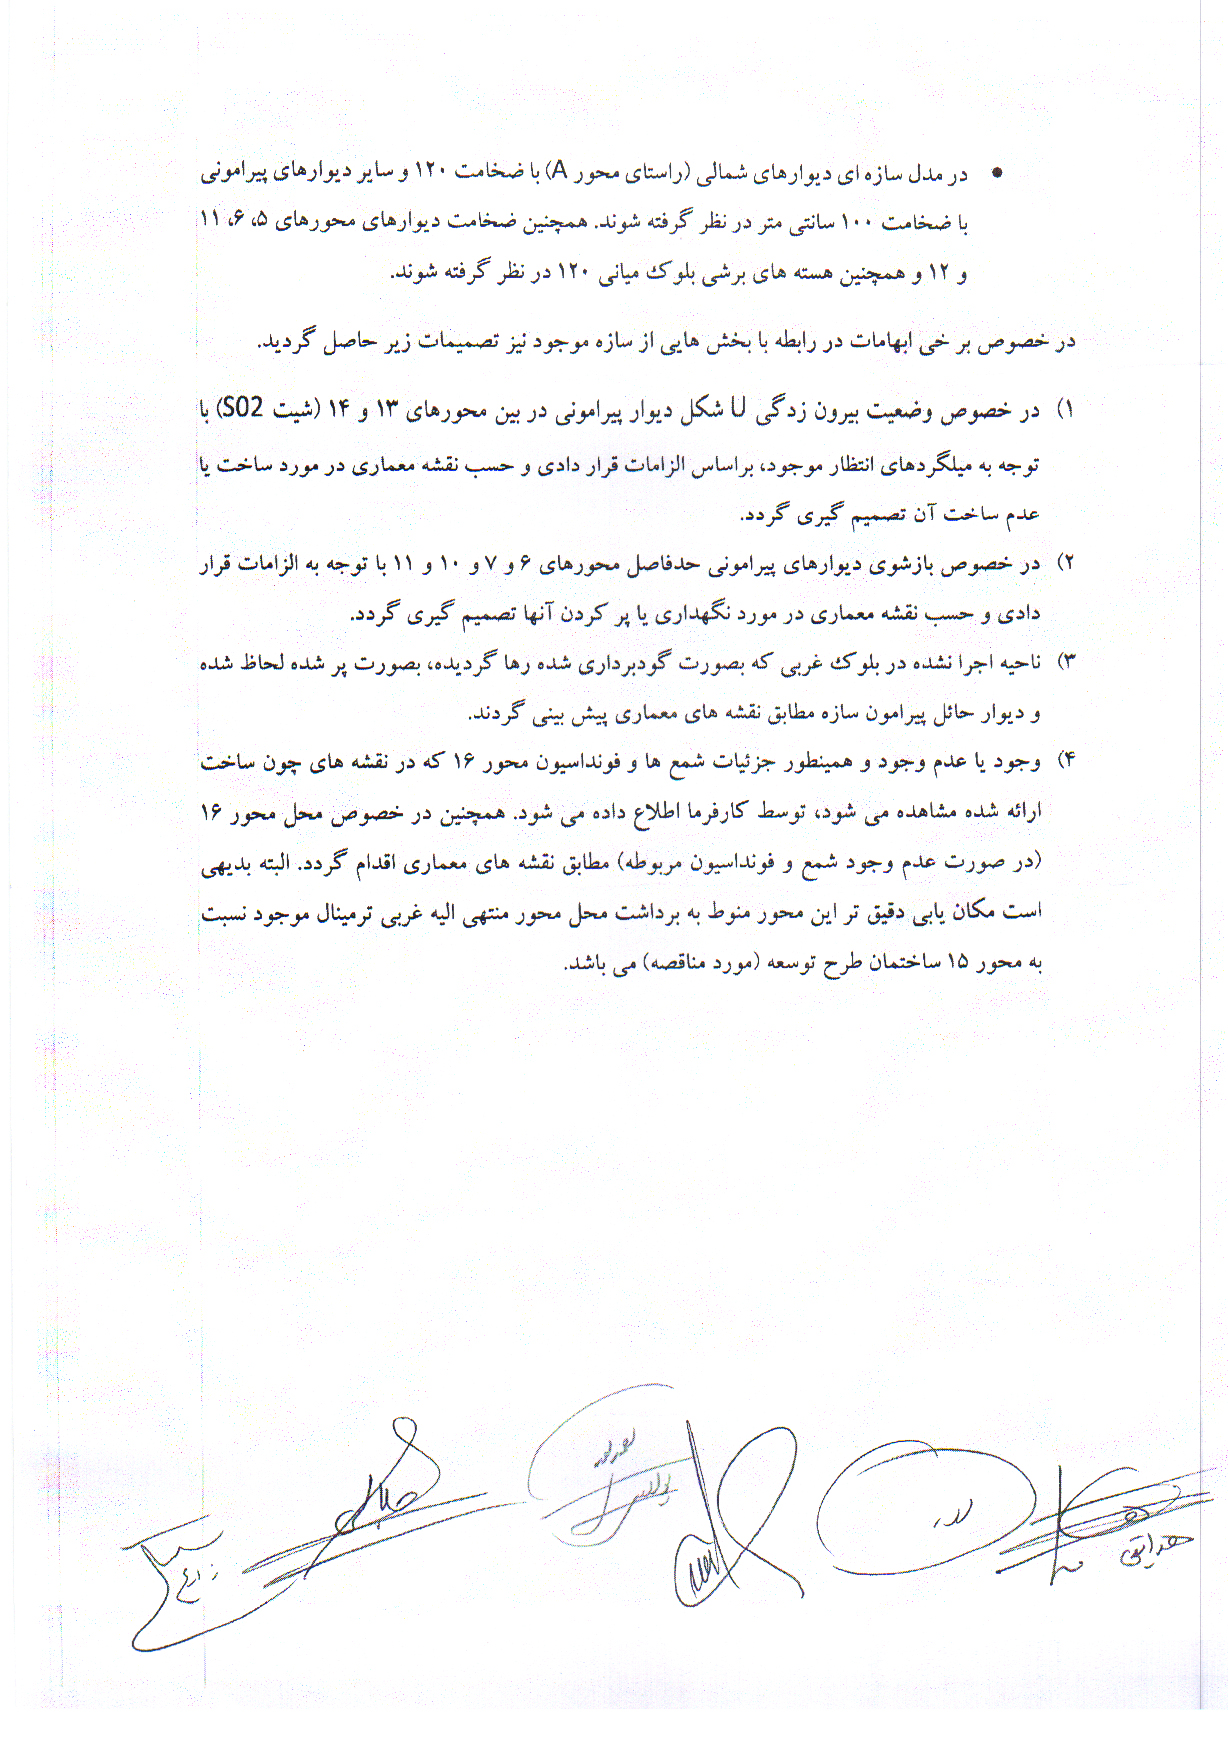 • در مدل سازه ای دیوارهای شمالی (راستای محور A) با ضخامت ۱۲۰ و سایر دیوارهای پیرامونی
با ضخامت ۱۰۰ سانتی متر در نظر گرفته شوند. همچنین ضخامت دیوارهای محورهای ۵، ۶، ۱۱
و ۱۲ و همچنین هسته های برشی بلوک میانی ۱۲۰ در نظر گرفته شوند.
در خصوص بر خی ابهامات در رابطه با بخش هایی از سازه موجود نیز تصمیمات زیر حاصل گردید.
۱) در خصوص وضعیت بیرون زدگی U شکل دیوار پیرامونی در بین محورهای ۱۳ و ۱۴ (شیت S02) با
توجه به میلگردهای انتظار موجود، براساس الزامات قرار دادی و حسب نقشه معماری در مورد ساخت یا
عدم ساخت آن تصمیم گیری گردد.
۲) در خصوص بازشوی دیوارهای پیرامونی حدفاصل محورهای ۶ و ۷ و ۱۰ و ۱۱ با توجه به الزامات قرار
دادی و حسب نقشه معماری در مورد نگهداری یا پر کردن آنها تصمیم گیری گردد.
۳) ناحیه اجرا نشده در بلوک غربی که بصورت گودبرداری شده رها گردیده، بصورت پر شده لحاظ شده
و دیوار حائل پیرامون سازه مطابق نقشه های معماری پیش بینی گردند.
۴) وجود یا عدم وجود و همینطور جزئیات شمع ها و فونداسیون محور ۱۶ که در نقشه های چون ساخت
ارائه شده مشاهده می شود، توسط کارفرما اطلاع داده می شود. همچنین در خصوص محل محور ۱۶
(در صورت عدم وجود شمع و فونداسیون مربوطه) مطابق نقشه های معماری اقدام گردد. البته بدیهی
است مکان یابی دقیق تر این محور منوط به برداشت محل محور منتهی الیه غربی ترمینال موجود نسبت
به محور ۱۵ ساختمان طرح توسعه (مورد مناقصه) می باشد.
هدایتی